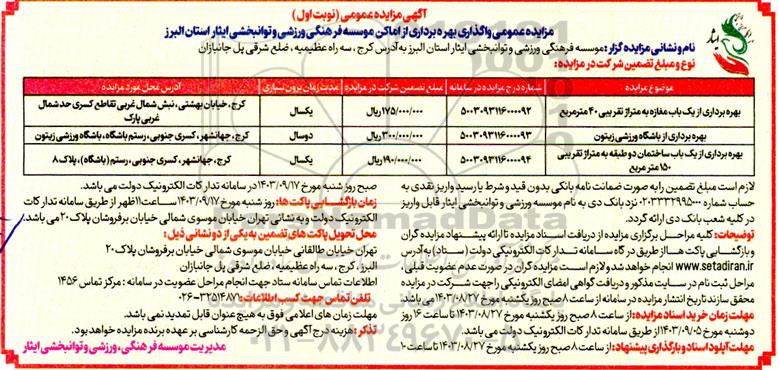 آگهی مزایده عمومی (نوبت اول)
مزایده عمومی واگذاری بهره برداری از اماکن موسسه فرهنگی ورزشی و توانبخشی ایثار استان البرز
نام و نشانی مزایده گزار: موسسه فرهنگی ورزشی و توانبخشی ایثار استان البرز به آدرس کرج ، سه راه عظیمیه ، ضلع شرقی پل جانبازان
نوع و مبلغ تضمین شرکت در مزایده:
ایثار
موضوع مزایده | شماره درج مزایده در سامانه | مبلغ تضمین شرکت در مزایده | مدت زمان برون سپاری | آدرس محل مورد مزایده
بهره برداری از یک باب مغازه به متراژ تقریبی ۴۰ مترمربع | ۵۰۰۳۰۹۳۱۱۶۰۰۰۰۹۲ | ۱۷۵/۰۰۰/۰۰۰ریال | یکسال | کرج، خیابان بهشتی، نبش شمال غربی تقاطع کسری حد شمال غربی پارک
بهره برداری از باشگاه ورزشی زیتون | ۵۰۰۳۰۹۳۱۱۶۰۰۰۰۹۳ | ۳۰۰/۰۰۰/۰۰۰ریال | دوسال | کرج، جهانشهر، کسری جنوبی، رستم باشگاه، باشگاه ورزشی زیتون
بهره برداری از یک باب ساختمان دو طبقه به متراژ تقریبی ۱۵۰ متر مربع | ۵۰۰۳۰۹۳۱۱۶۰۰۰۰۹۴ | ۱۹۰/۰۰۰/۰۰۰ریال | یکسال | کرج، جهانشهر، کسری جنوبی، رستم (باشگاه)، پلاک ۸
لازم است مبلغ تضمین را به صورت ضمانت نامه بانکی بدون قید و شرط یا رسید واریز نقدی به
حساب شماره ۰۲۰۳۳۳۲۹۹۵۰۰۰ نزد بانک دی به نام موسسه ورزشی و توانبخشی ایثار قابل واریز
در کلیه شعب بانک دی ارائه گردد.
توضیحات: کلیه مراحل برگزاری مزایده از دریافت اسناد مزایده تا ارائه پیشنهاد مزایده گران
و بازگشایی پاکت ها از طریق درگاه سامانه تدارکات الکترونیکی دولت (ستاد) به آدرس
www.setadiran.ir انجام خواهد شد و لازم است مزایده گران در صورت عدم عضویت قبلی ،
مراحل ثبت نام در سایت مذکور و دریافت گواهی امضای الکترونیکی را جهت شرکت در مزایده
محقق سازند تاریخ انتشار مزایده در سامانه از ساعت ۸ صبح روز یکشنبه مورخ ۱۴۰۳/۰۸/۲۷ می باشد
مهلت زمان خرید اسناد مزایده: از ساعت ۸ صبح روز یکشنبه مورخ ۱۴۰۳/۰۸/۲۷ تا ساعت ۱۶ روز
دوشنبه مورخ ۱۴۰۳/۰۹/۰۵ از طریق سامانه تدارکات الکترونیک دولت می باشد.
مهلت آپلود اسناد و بارگذاری پیشنهاد: از ساعت ۸ صبح روز یکشنبه مورخ ۱۴۰۳/۰۸/۲۷ تا ساعت ۱۰
صبح روز شنبه مورخ ۱۴۰۳/۰۹/۱۷ در سامانه تدارکات الکترونیک دولت می باشد.
زمان بازگشایی پاکت ها: روز شنبه مورخ ۱۴۰۳/۰۹/۱۷ ساعت ۱۱ظهر از طریق سامانه تدارکات
الکترونیک دولت و به نشانی تهران خیابان موسوی شمالی خیابان برفروشان پلاک ۲۰ می باشد.
محل تحویل پاکت های تضمین به یکی از دو نشانی ذیل:
تهران خیابان طالقانی خیابان موسوی شمالی خیابان برفروشان پلاک ۲۰
البرز ، کرج ، سه راه عظیمیه ، ضلع شرقی پل جانبازان
اطلاعات تماس سامانه ستاد جهت انجام مراحل عضویت در سامانه : مرکز تماس ۱۴۵۶
تلفن تماس جهت کسب اطلاعات: ۳۲۵۱۴۸۷۱-۰۲۶
مهلت زمان های اعلامی فوق به هیچ عنوان قابل تمدید نمی باشد.
تذکر: هزینه درج آگهی و حق الزحمه کارشناسی بر عهده برنده مزایده خواهد بود.
مدیریت موسسه فرهنگی، ورزشی و توانبخشی ایثار